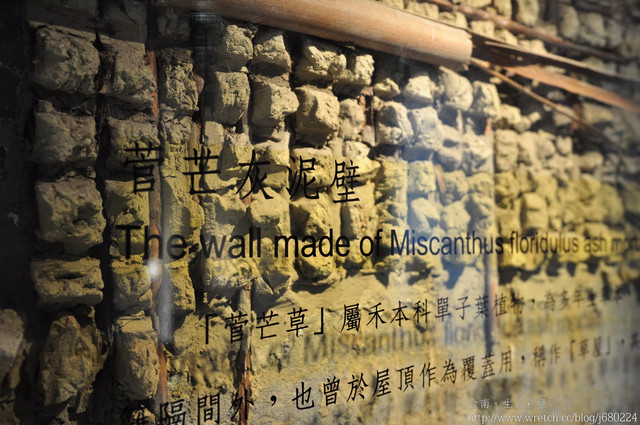 菅芒灰泥壁
The wall made of Miscanthus floridulus ash
「菅芒草」屬禾本科單子葉植物，為多年
隔間外，也曾於屋頂作為覆蓋用，稱作『草屋』，
台南。生
http://www.wretch.cc/blog/j680224